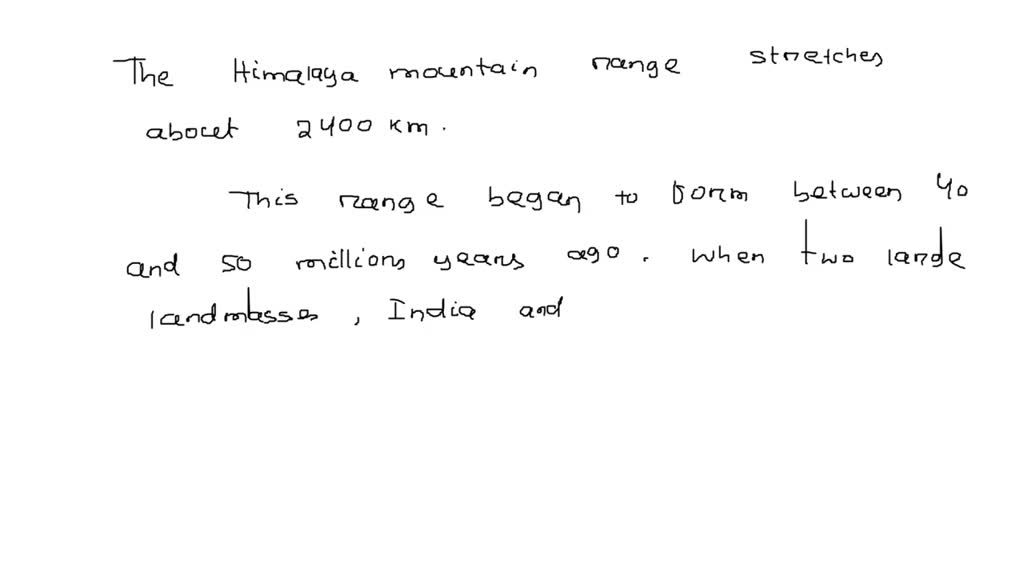 The Himalaya mountain range stretches
about 2400 km.
This range began to form between 40
and 50 millions years ago. When two large
landmasses, India and